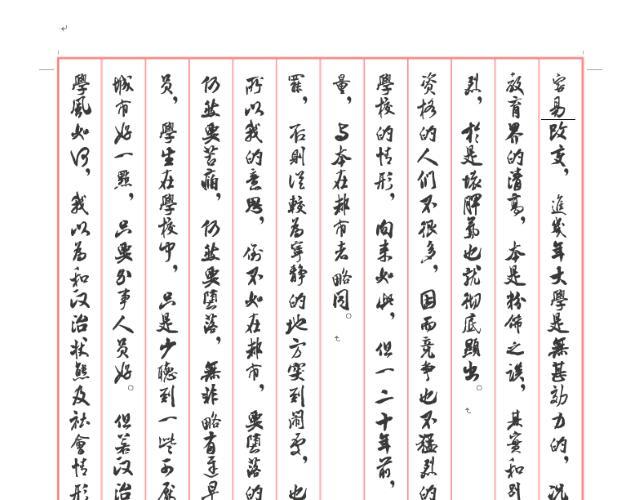 容易改变，進幾年大學是無甚効力的，况
教育界的清高，本是粉飾之谈，其實和别
烈，於是壞脾氣也就彻底顯出。
資格的人们不很多，因而竞争也不猛烈的
學校的情形，向来如此，但一二十年前，
量，与本在都市者略同。
罷，否則從較為寧静的地方突到闹處，也
所以我的意思，倒不如在都市，要堕落的
仍然要苦痛，仍然要堕落，無非略有迟早
员，學生在學校中，只是少聽到一些可厌
城市好一點，只要办事人员好。但若政治
學風如何，我以為和政治状態及社會情形